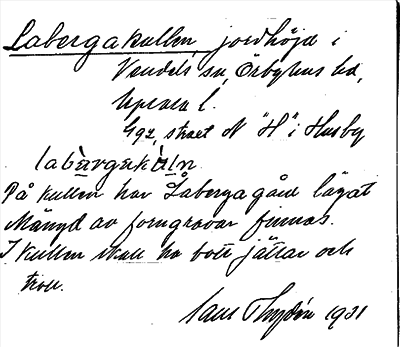 Labergakullen, jordhöjd i
Vendels sn, Örbyhus hd,
Uppsala l.
Läge, straxt N "H" i Husby
På kullen har Laberga gård legat
Mängd av forngravar finnas.
I kullen skall ha bott jättar och
troll.
1931